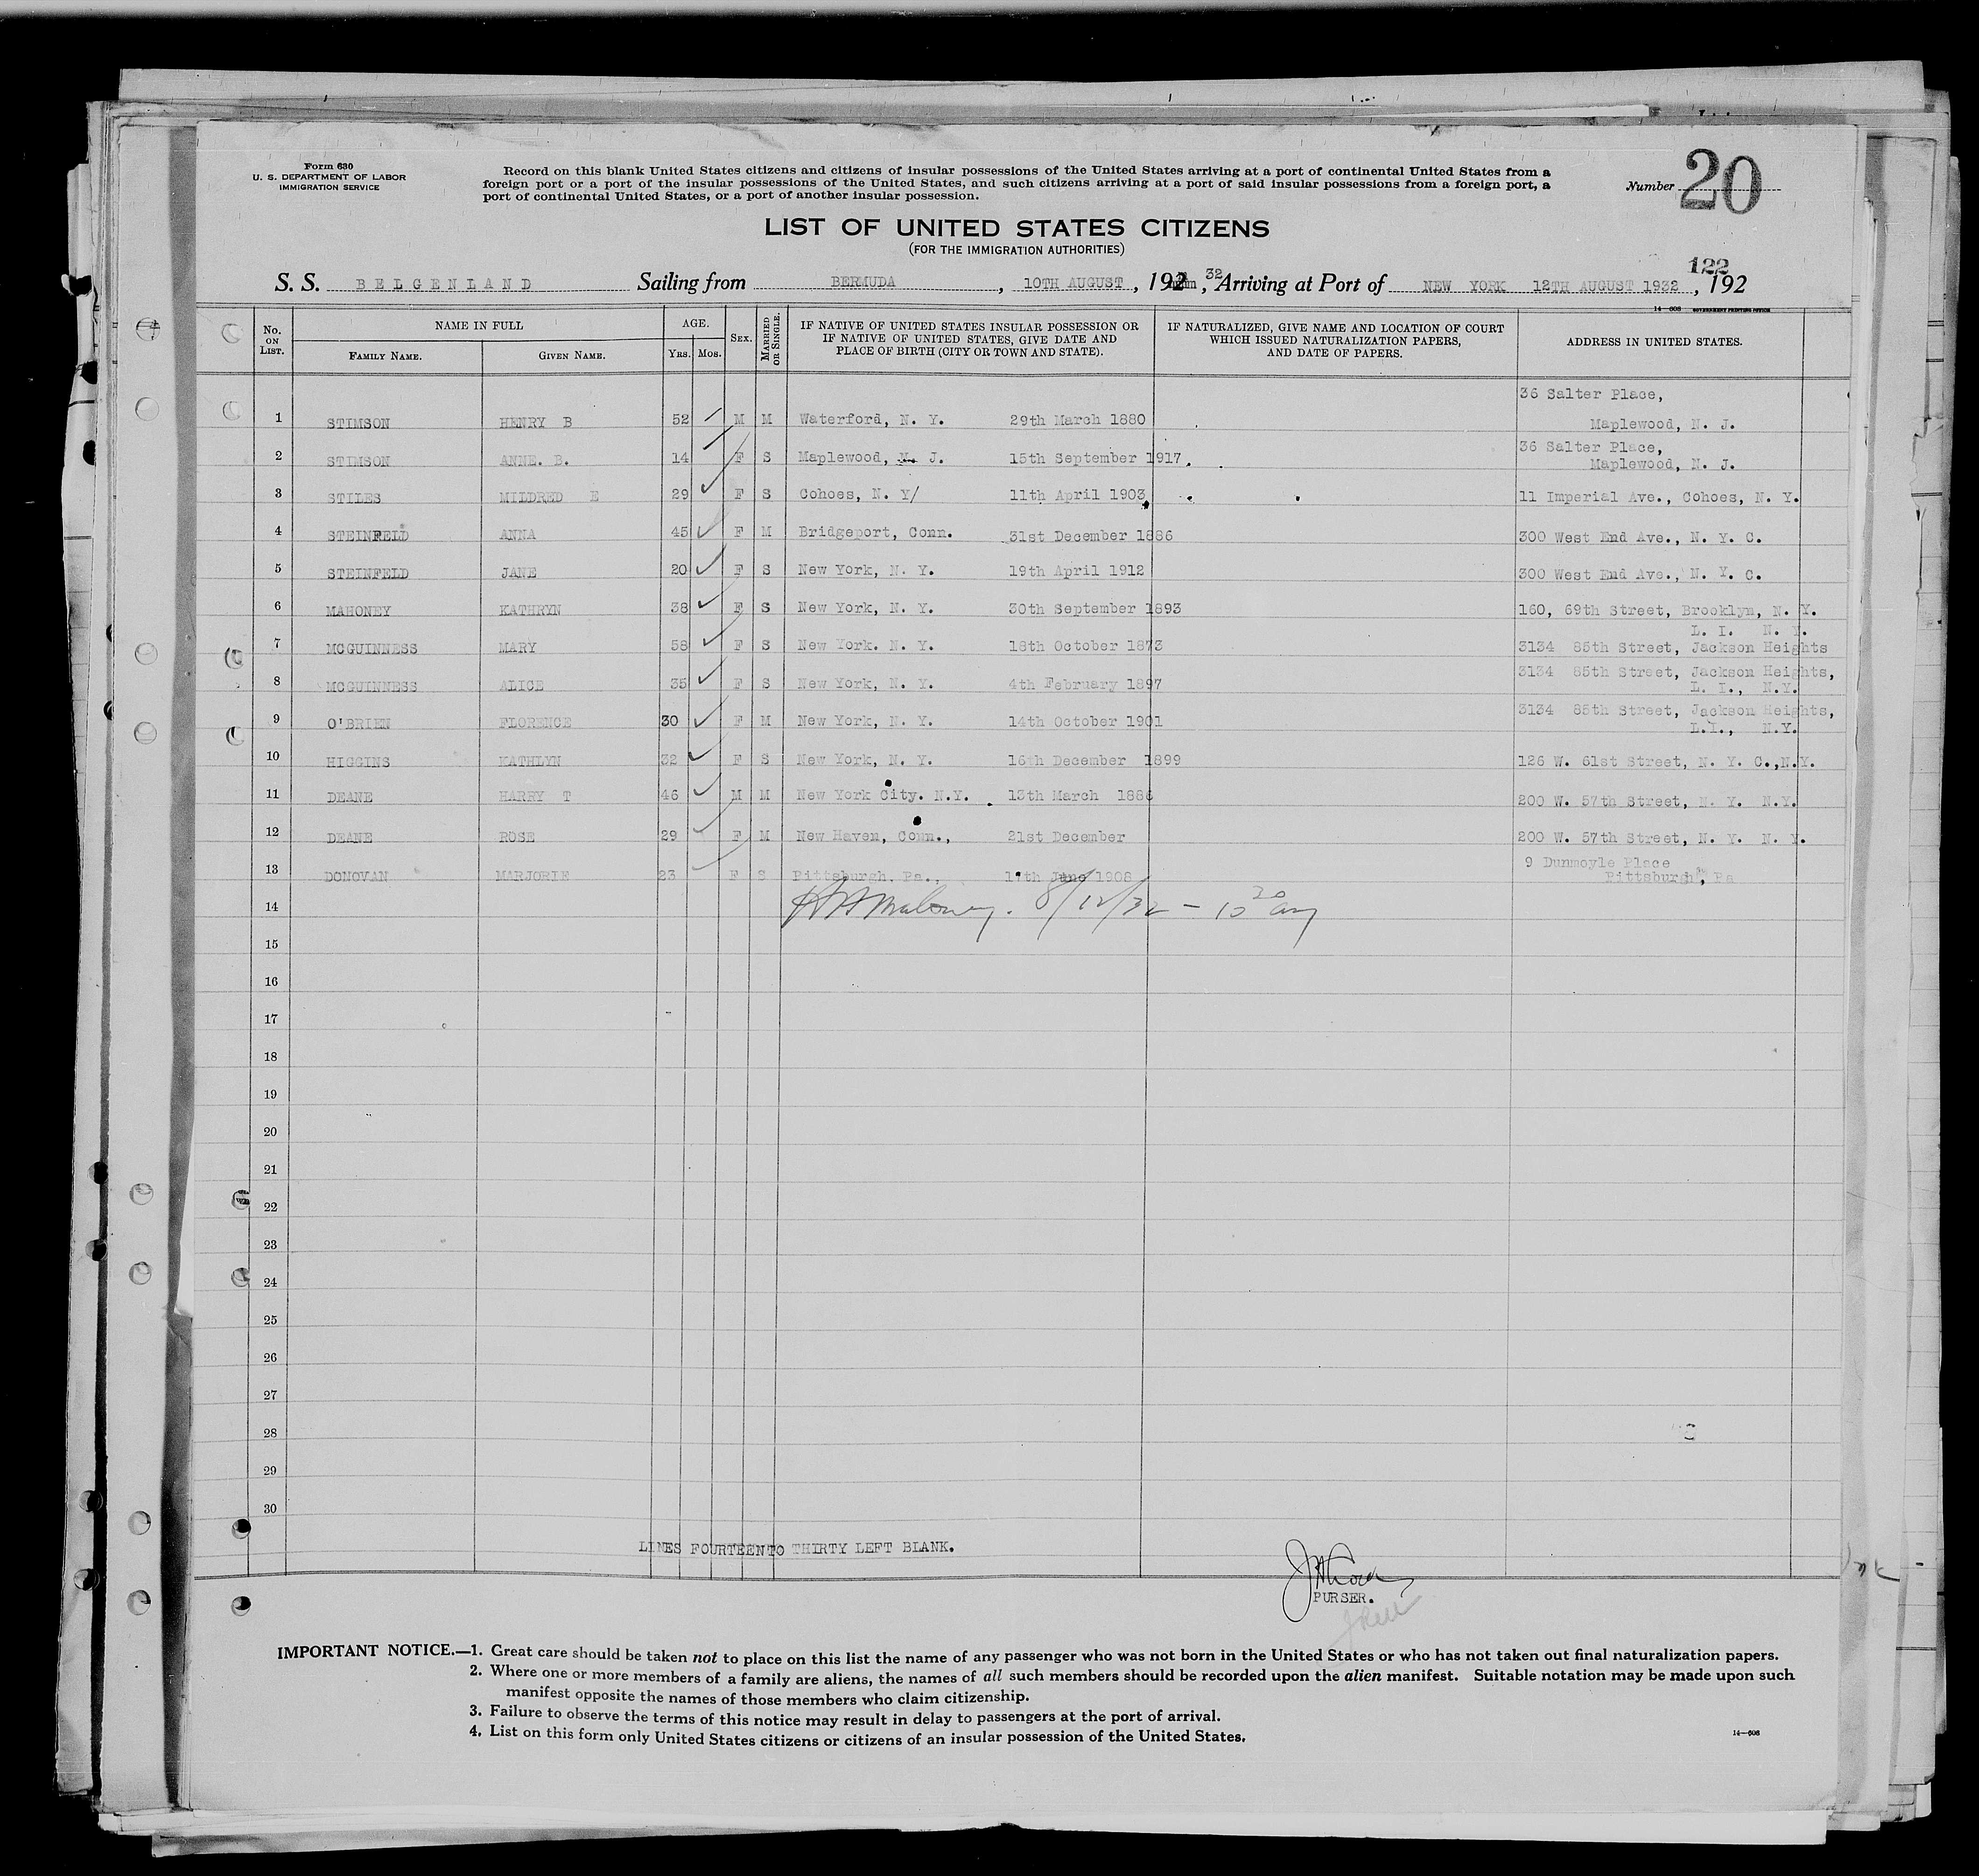 Form 630
U. S. DEPARTMENT OF LABOR
IMMIGRATION SERVICE
Record on this blank United States citizens and citizens of insular possessions of the United States arriving at a port of continental United States from a
foreign port or a port of the insular possessions of the United States, and such citizens arriving at a port of said insular possessions from a foreign port, a
port of continental United States, or a port of another insular possession.
Number 20
LIST OF UNITED STATES CITIZENS
(FOR THE IMMIGRATION AUTHORITIES)
122
S. S. BELGENLAND Sailing from BERMUDA, 10TH AUGUST, 192 32, Arriving at Port of NEW YORK 12TH AUGUST 1932, 192
14—608 GOVERNMENT PRINTING OFFICE
No. ON LIST. NAME IN FULL FAMILY NAME. GIVEN NAME. AGE. YRS. MOS. SEX. MARRIED OR SINGLE. IF NATIVE OF UNITED STATES INSULAR POSSESSION OR IF NATIVE OF UNITED STATES, GIVE DATE AND PLACE OF BIRTH (CITY OR TOWN AND STATE). IF NATURALIZED, GIVE NAME AND LOCATION OF COURT WHICH ISSUED NATURALIZATION PAPERS, AND DATE OF PAPERS. ADDRESS IN UNITED STATES.
36 Salter Place,
1 STIMSON HENRY B 52 M M Waterford, N. Y. 29th March 1880 Maplewood, N. J.
36 Salter Place,
2 STIMSON ANNE. B. 14 F S Maplewood, N. J. 15th September 1917. Maplewood, N. J.
3 STILES MILDRED E 29 F S Cohoes, N. Y/ 11th April 1903 11 Imperial Ave., Cohoes, N. Y.
4 STEINFELD ANNA 45 F M Bridgeport, Conn. 31st December 1886 300 West End Ave., N. Y. C.
5 STEINFELD JANE 20 F S New York, N. Y. 19th April 1912 300 West End Ave., N. Y. C.
6 MAHONEY KATHRYN 38 F S New York, N. Y. 30th September 1893 160, 69th Street, Brooklyn, N. Y.
L. I. N. Y.
7 MCGUINNESS MARY 58 F S New York. N. Y. 18th October 1873 3134 85th Street, Jackson Heights
8 MCGUINNESS ALICE 35 F S New York, N. Y. 4th February 1897 3134 85th Street, Jackson Heights,
L. I., N.Y.
9 O'BRIEN FLORENCE 30 F M New York, N. Y. 14th October 1901 3134 85th Street, Jackson Heights,
L.I., N.Y.
10 HIGGINS KATHLYN 32 F S New York, N. Y. 16th December 1899 126 W. 61st Street, N. Y. C.,N.Y.
11 DEANE HARRY T 46 M M New York City. N.Y. 13th March 1886 200 W. 57th Street, N. Y. N.Y.
12 DEANE ROSE 29 F M New Haven, Conn., 21st December 200 W. 57th Street, N. Y. N. Y.
9 Dunmoyle Place
13 DONOVAN MARJORIE 23 F S Pittsburgh. Pa., June 1908 Pittsburgh, Pa
14 8/12/32 — 10 20 am
15
16
17
18
19
20
21
22
23
24
25
26
27
28
29
30
LINES FOURTEEN TO THIRTY LEFT BLANK.
PURSER.
IMPORTANT NOTICE.—1. Great care should be taken not to place on this list the name of any passenger who was not born in the United States or who has not taken out final naturalization papers.
2. Where one or more members of a family are aliens, the names of all such members should be recorded upon the alien manifest. Suitable notation may be made upon such
manifest opposite the names of those members who claim citizenship.
3. Failure to observe the terms of this notice may result in delay to passengers at the port of arrival.
4. List on this form only United States citizens or citizens of an insular possession of the United States.
14—608